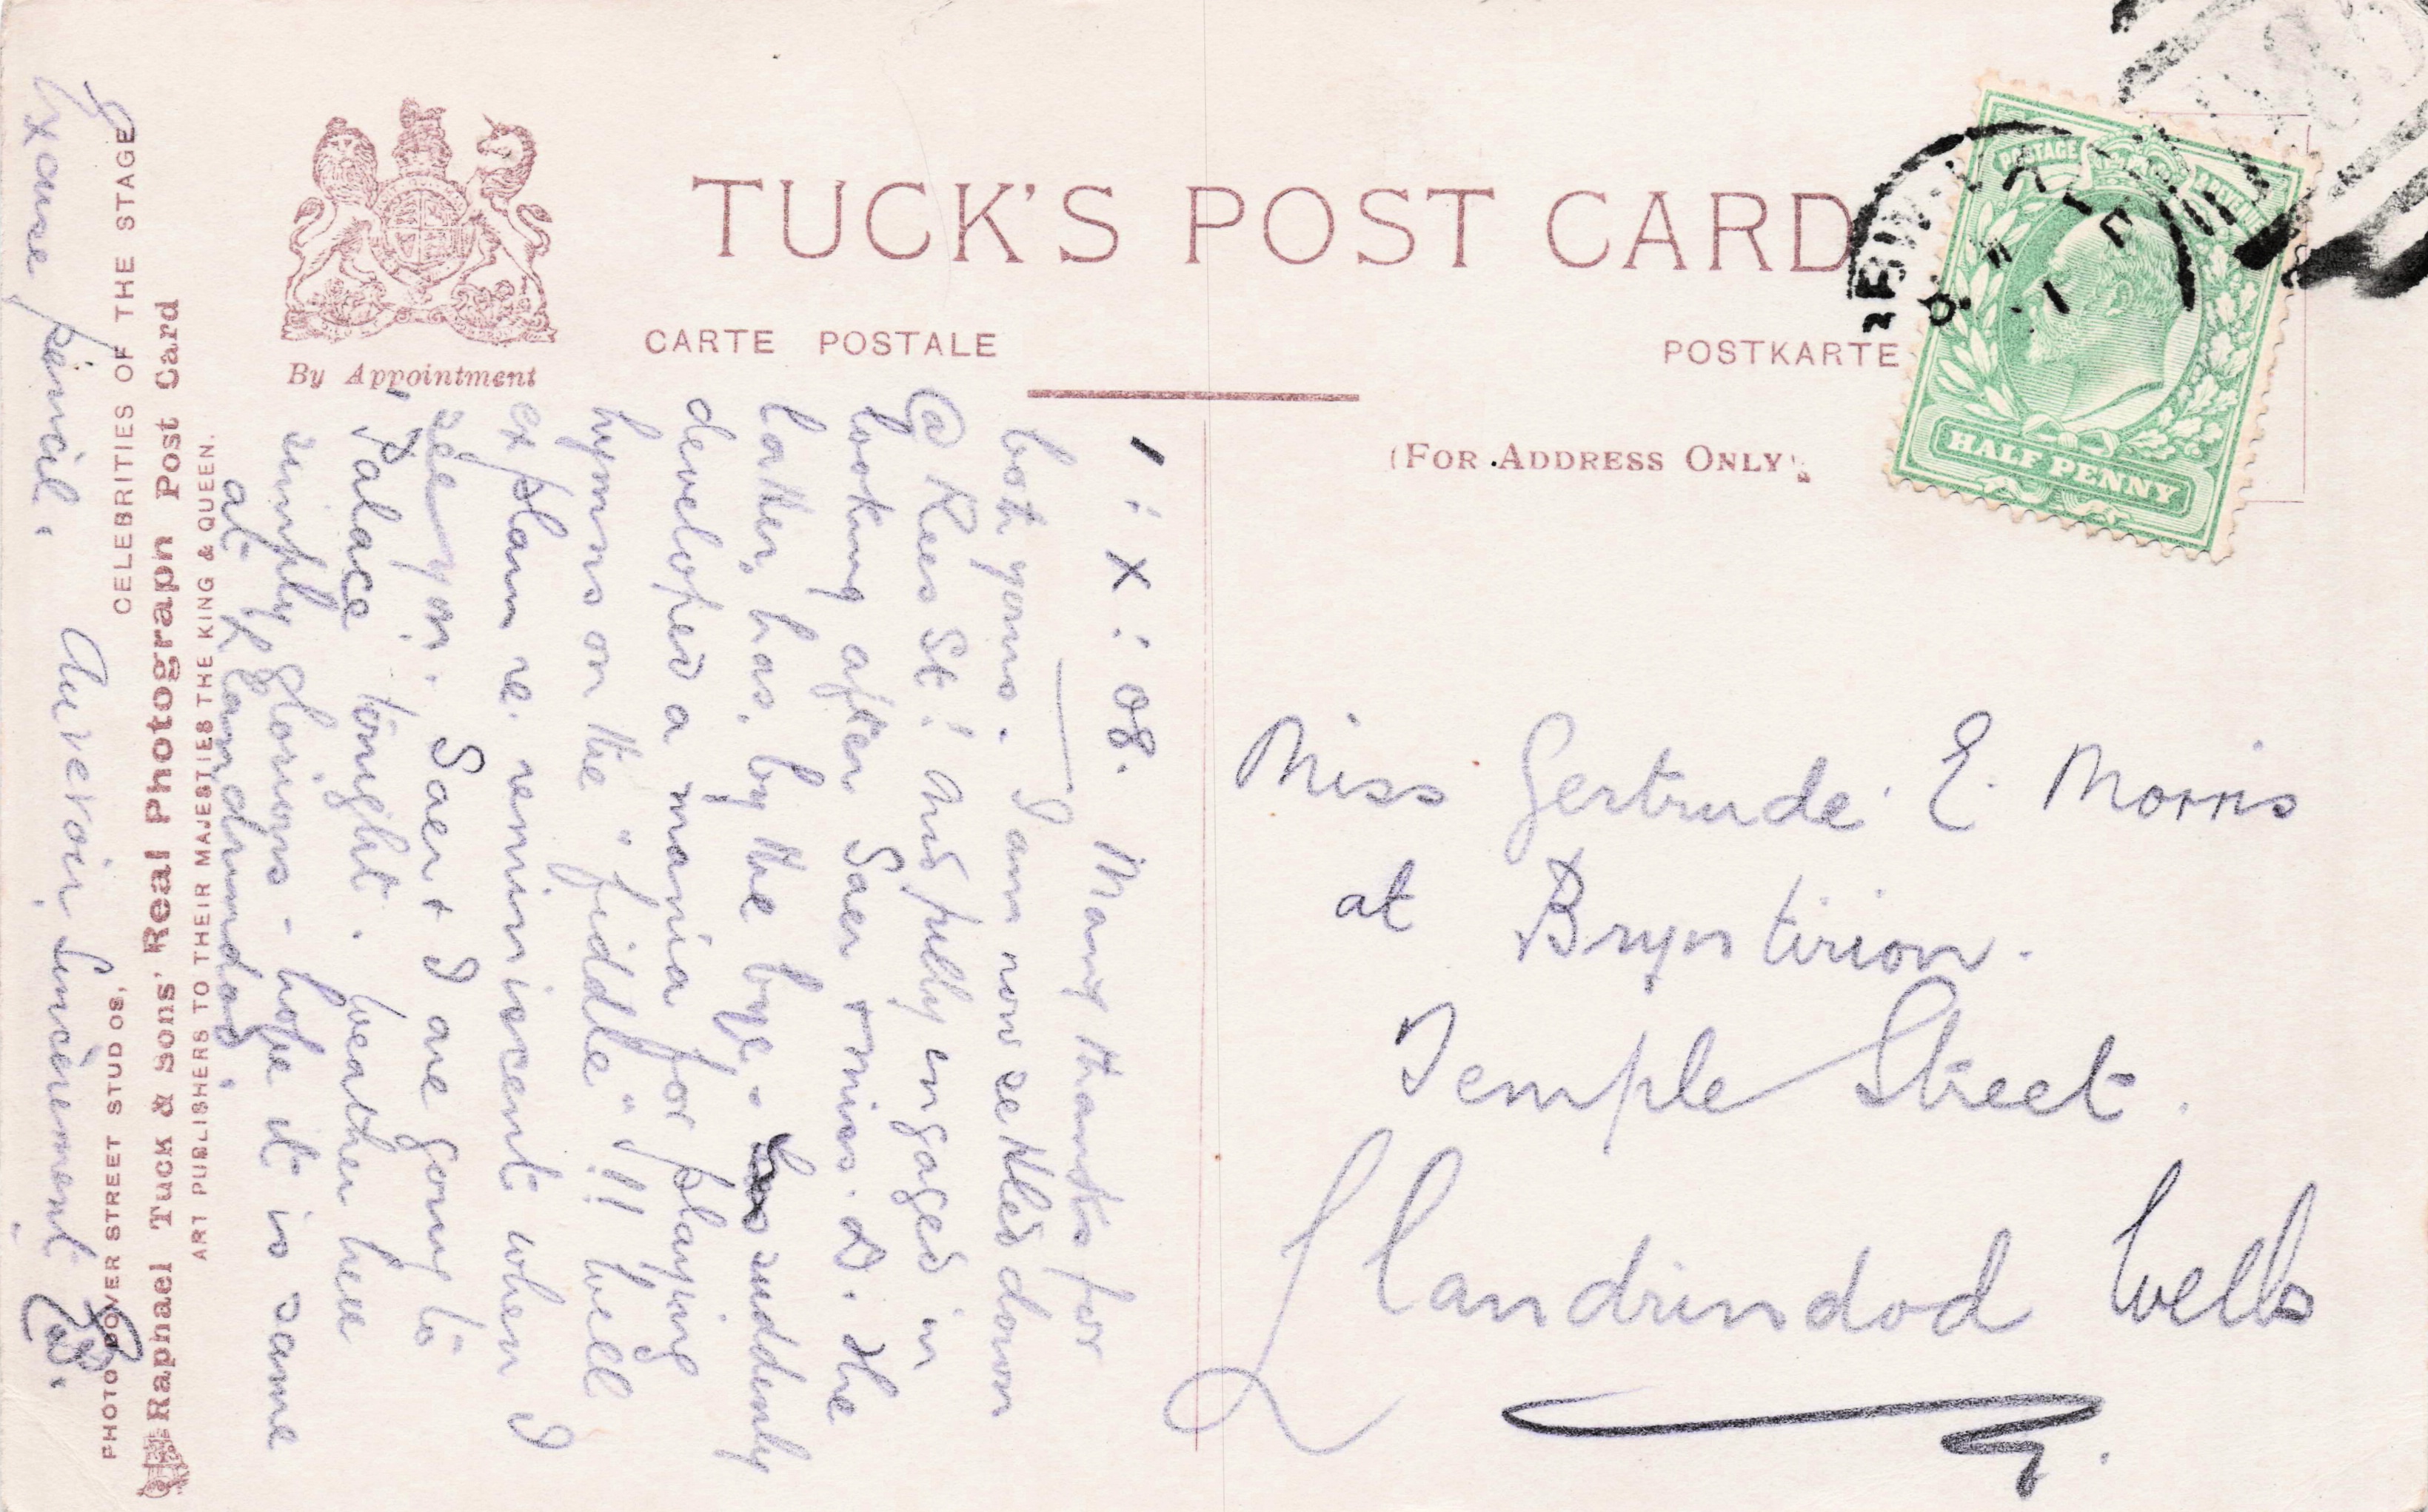 TUCK'S POST CARD
By Appointment
CARTE POSTALE
POSTKARTE
(FOR ADDRESS ONLY)
POSTAGE
HALF PENNY
Miss Gertrude E. Morris
at Bryntirion.
Temple Street.
Llandrindod Wells
1 : X : 08.
Many thanks for
both yours. I am now settled down
@ Rees St! And fully engaged in
looking after Saer + miss. D. The
latter, has, by the bye, - suddenly
developed a mania for playing
hymns on the "fiddle"!!! Will
explain re. reminiscent when I
see you. Saer + I are going to
"Palace" tonight. Weather here
simply glorious - hope it is same
at Llandrindod.
CELEBRITIES OF THE STAGE
PHOTO DOVER STREET STUDIOS,
Raphael Tuck & Sons' Real Photograph Post Card
ART PUBLISHERS TO THEIR MAJESTIES THE KING & QUEEN.
Au revoir, Sincèrement
Excuse pencil.